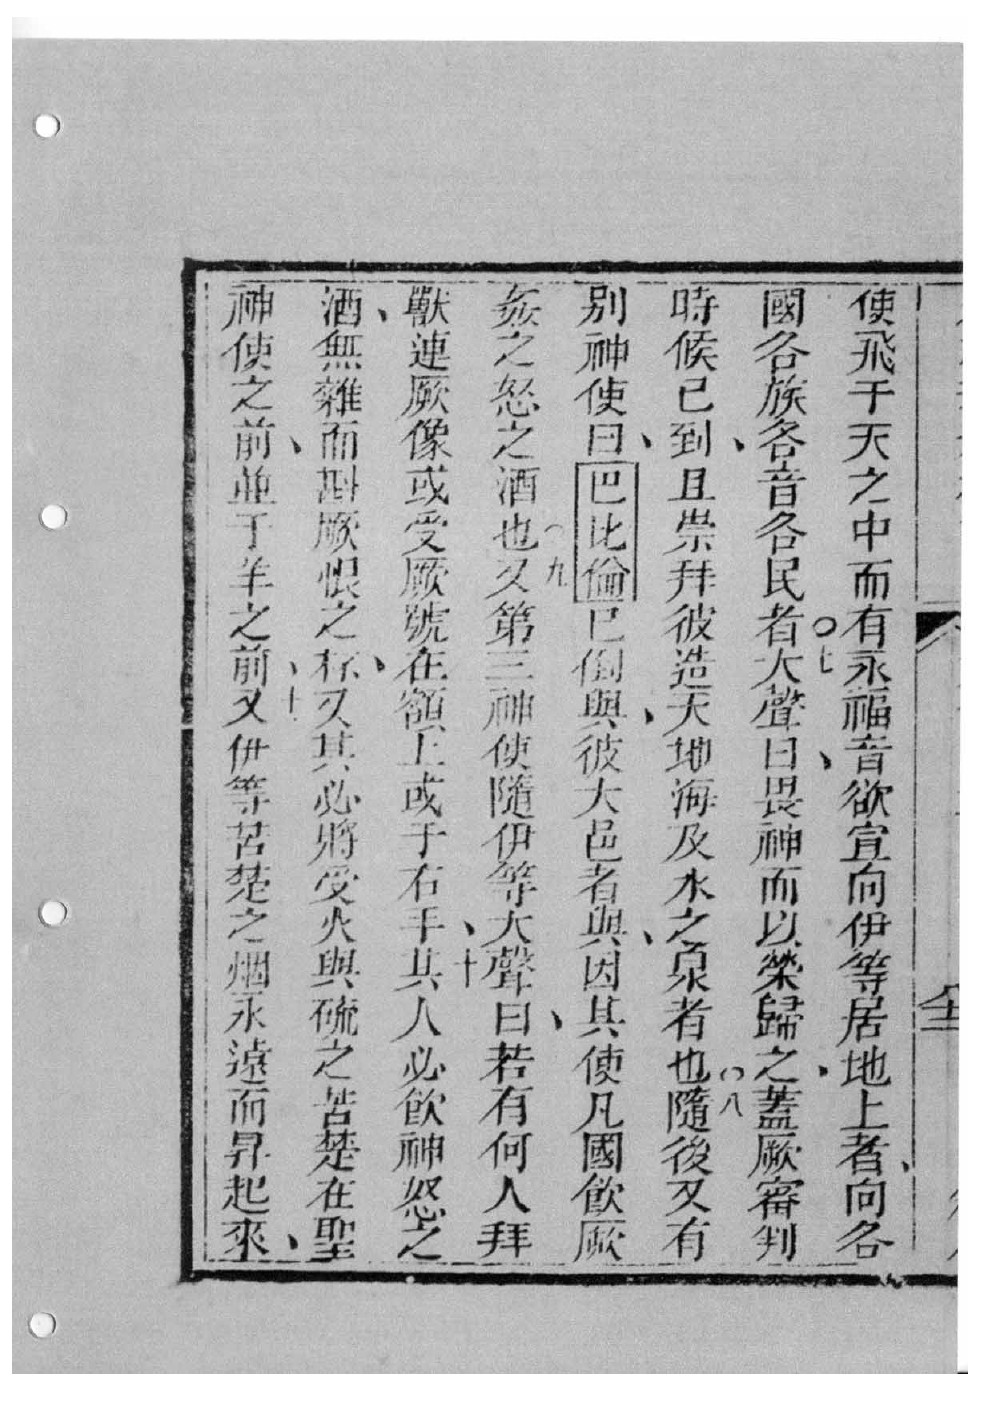 使飛于天之中而有永福音欲宣向伊等居地上者、向各
國各族各音各民者○七大聲曰、畏神而以榮歸之、蓋厥審判
時候已到、且祟拜彼造天地海及水之泉者也○八隨後又有
別神使曰、巴比倫已倒與、彼大邑者與、因其使凡國飲厥
姦之怒之酒也○九又第三神使隨伊等大聲曰、若有何人拜
獸連厥像或受厥號在額上或于右手、十其人必飲神怒之
酒、無雜而斟厥恨之杯、又其必將受火與硫之苦楚在聖
神使之前、並于羊之前、十又伊等苦楚之烟永遠而昇起來、